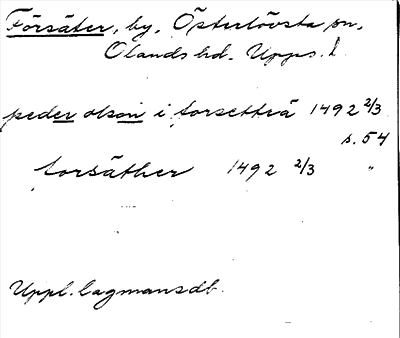 Försäter, by, Österlövsta sn,
Olands hd. Upps. l.
peder olson i forsetterä 1492 2/3
s. 54
forsäther 1492 2/3 "
Uppl. lagmansdb.